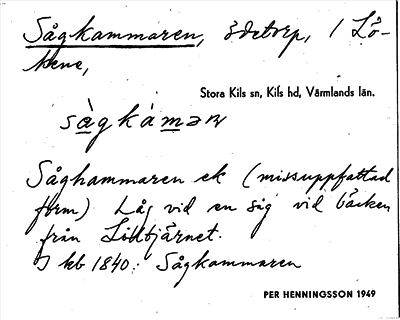 Sågkammaren, ödetorp, 1 Lö-
vene,
Stora Kils sn, Kils hd, Värmlands län.
sàgkámaɹ
Såghammaren ek (missuppfattad
form) Låg vid en såg vid bäcken
från Lilltjärnet.
I kb 1840: Sågkammaren
PER HENNINGSSON 1949